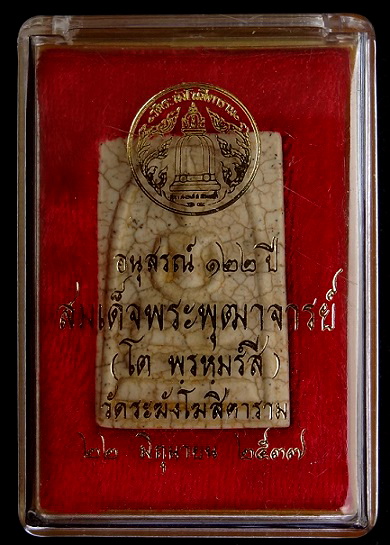 วัดระฆังโฆสิตาราม
อนุสรณ์ ๑๒๒ ปี
สมเด็จพระพุฒาจารย์
(โต พรหมรํสี)
วัดระฆังโฆสิตาราม
๒๒ มิถุนายน ๒๕๓๗